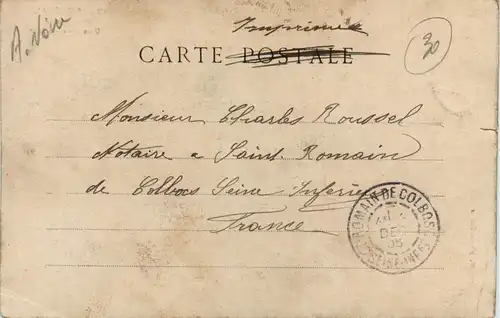 A. Noire
Imprimée
30
CARTE POSTALE
Monsieur Charles Roussel
Notaire a Saint Romain
de Colbocs Seine Inférieure
France
ROMAIN DE COLBOSC
DEC
05
SEINE-INFRE